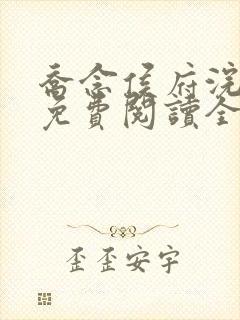 喬念侯府浣
免費閱讀全
歪歪安宇